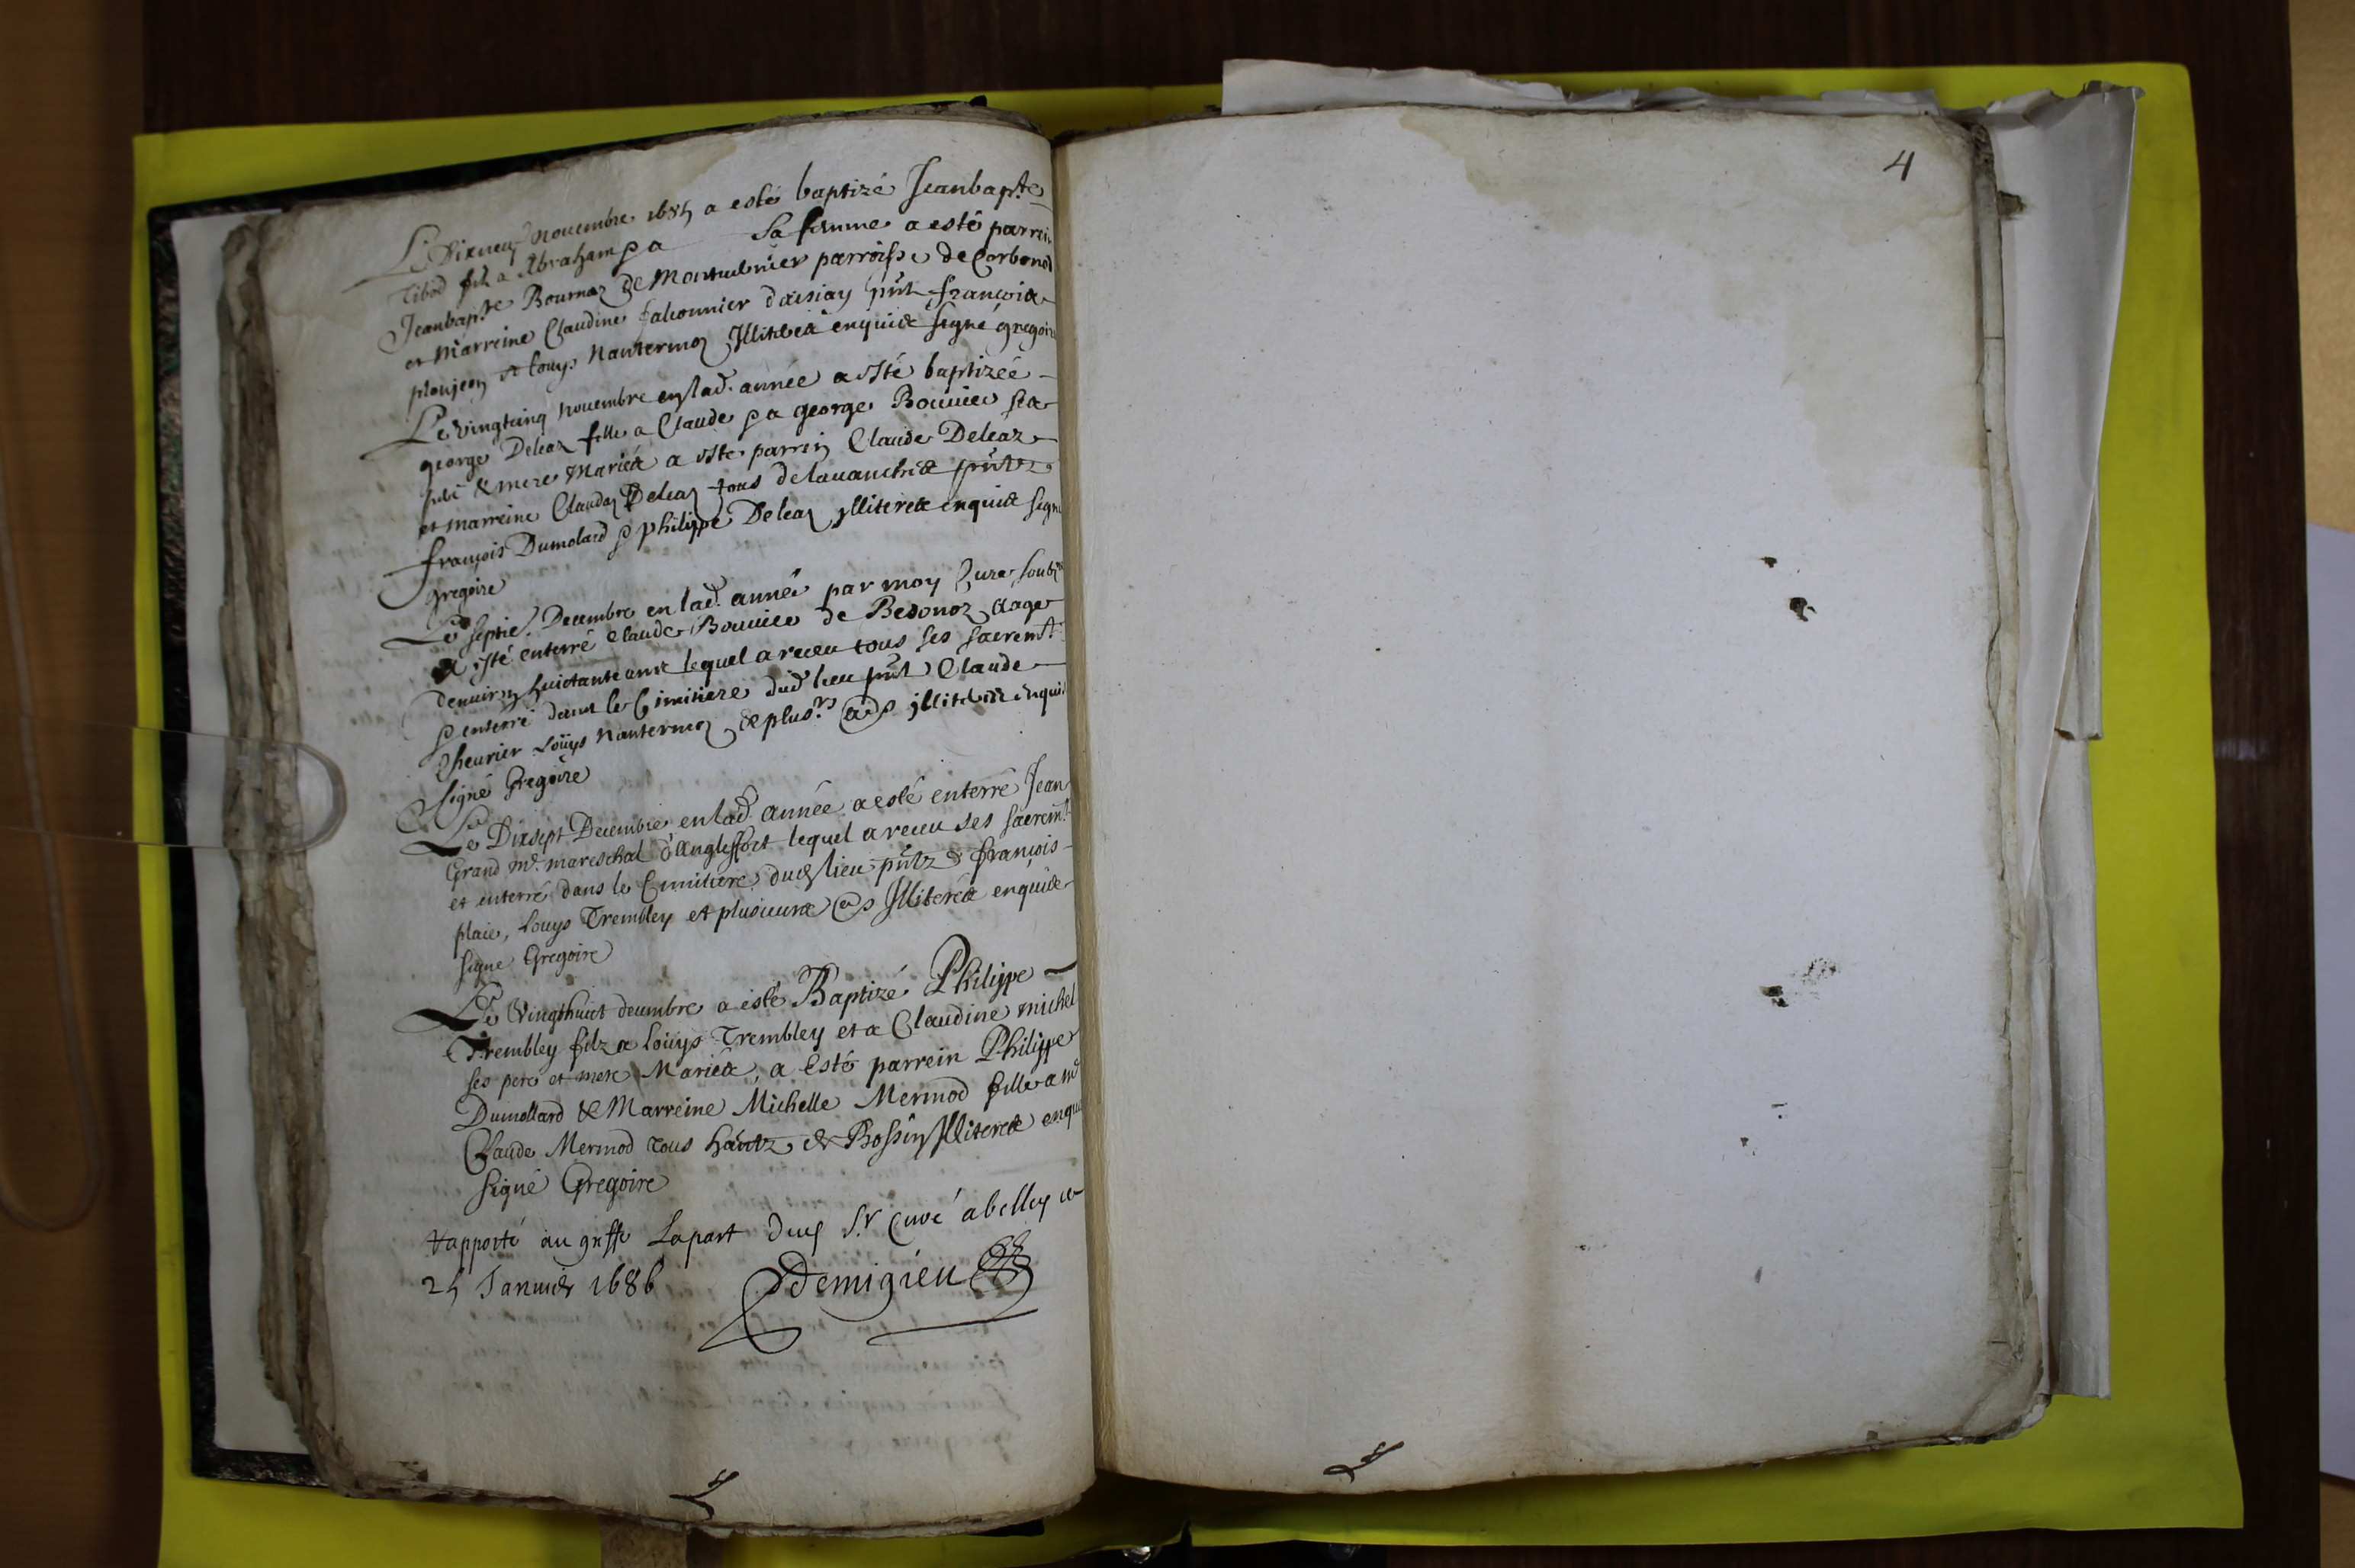 Le Dixneuf Nouembre 1685 a esté baptizé Jeanbapte
Tibod filz a Abraham & a sa femme a esté parrein
Jeanbapte Bournaz de Montuernier parroisse de Corbonod
et Marreine Claudine falconnier d'aisiay pnt francois
ploujeon et Louys Nantermoz Jlliterés enquis signé gregoire
Le vingtcinq nouembre en lad. année a esté baptizée
george Deleaz fille a Claude & a george Bouuier ses
pere & mere Mariés a esté parrein Claude Deleaz
et marreine Clauda Deleaz tous de lauanchie pntz
françois Dumolard & philippe Deleaz jlliterés enquis signé
gregoire
Le septie. Decembre en lad. année par moy Curé soubz
a esté enterré Claude Bouuier de Bedonoz aage
denuiron huictante ans lequel a receu tous ses sacremts
& enterré dans le Cimitiere dud. lieu pnt Claude
Cheurier Louys Nantermoz & plusrs aus jlliterés enquis
signé Gregoire
Le Dixsept Decembre en lad. année a esté enterré Jean
Grand me. mareschal d'Anglefort lequel a receu ses sacremt
et enterré dans le Cimitiere dud. lieu pntz françois
plaie, Louys Trembley et plusieurs aus Jlliterés enquis
signe Gregoire
Le Vingthuict decembre a esté Baptizé Philippe
Trembley filz a Louys Trembley et a Claudine michel
ses pere et mere Mariés, a Esté parrein Philippe
Dumollard & Marreine Michelle Mermod fille a me
Claude Mermod tous hantz de Bossin Jlliterés enquis
signé Gregoire
Rapporté au greffe Lapart dud. Sr Curé abelley ce
25 Januier 1686 Demigieu
4